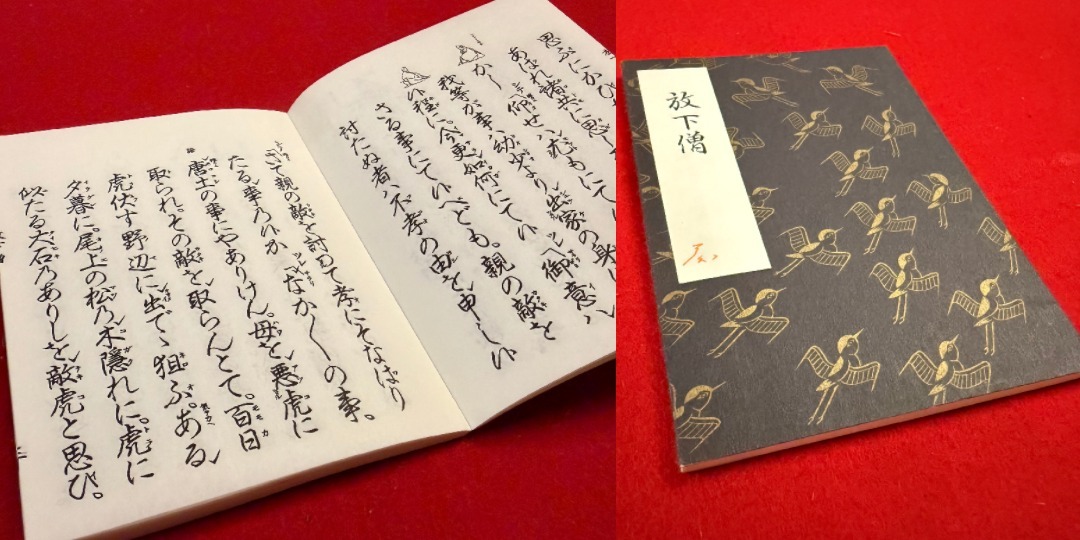 思ふにかひ
あはれ諸共に思し
かし 仰せハ尤もにて
我等が事ハ幼少より出家の身
候程に。今更如何にて候 ツレ 御意ハ
さる事にて候へとも。親の敵を
討たぬ者ハ不孝の由を申し候
さて親の敵を討つて孝にそなはり
たる事乃候か ツレ なか〱の事。
唐土の事にやありけん。母を悪虎に
取られ。その敵を取らんとて。百日
虎伏す野辺に出でゝ狙ふ。ある
夕暮に。尾上の松乃木隠れに。虎に
似たる大石乃ありしを敵虎と思ひ。
放下僧